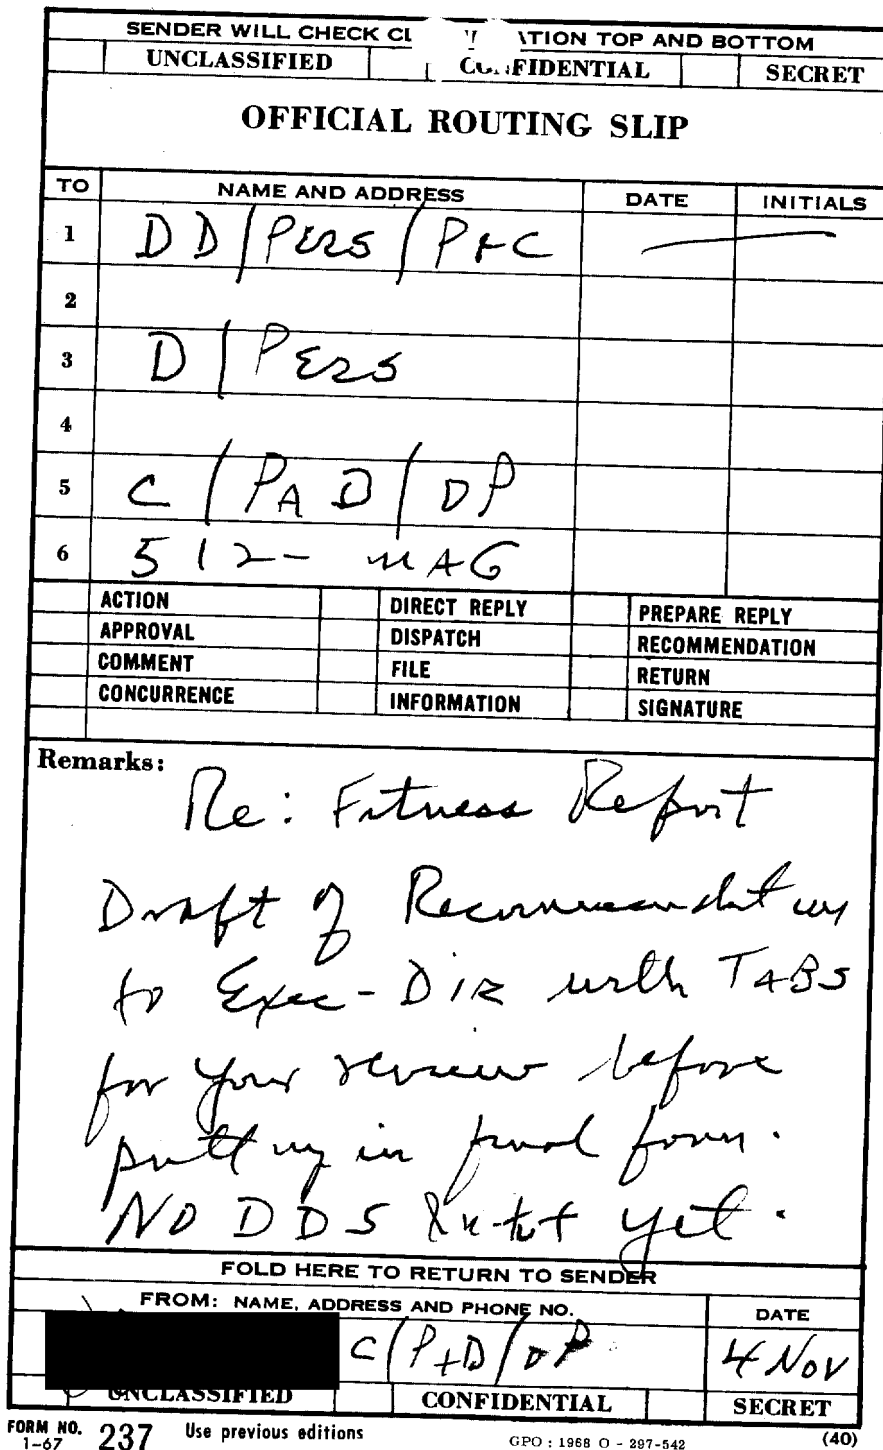 SENDER WILL CHECK CL TION TOP AND BOTTOM
UNCLASSIFIED CONFIDENTIAL SECRET
OFFICIAL ROUTING SLIP
TO NAME AND ADDRESS DATE INITIALS
1 DD/PERS/P&C
2
3 D/PERS
4
5 C/PAD/OP
6 512- MAG
ACTION DIRECT REPLY PREPARE REPLY
APPROVAL DISPATCH RECOMMENDATION
COMMENT FILE RETURN
CONCURRENCE INFORMATION SIGNATURE
Remarks:
Re: Fitness Report
Draft of Recommendation
to Exec-Dir with TABS
for your review before
putting in final form.
NO DDS yet.
FOLD HERE TO RETURN TO SENDER
FROM: NAME, ADDRESS AND PHONE NO. DATE
C/P+D/OP 4 Nov
UNCLASSIFIED CONFIDENTIAL SECRET
FORM NO. 237 Use previous editions GPO : 1968 O - 297-542 (40)
1-67